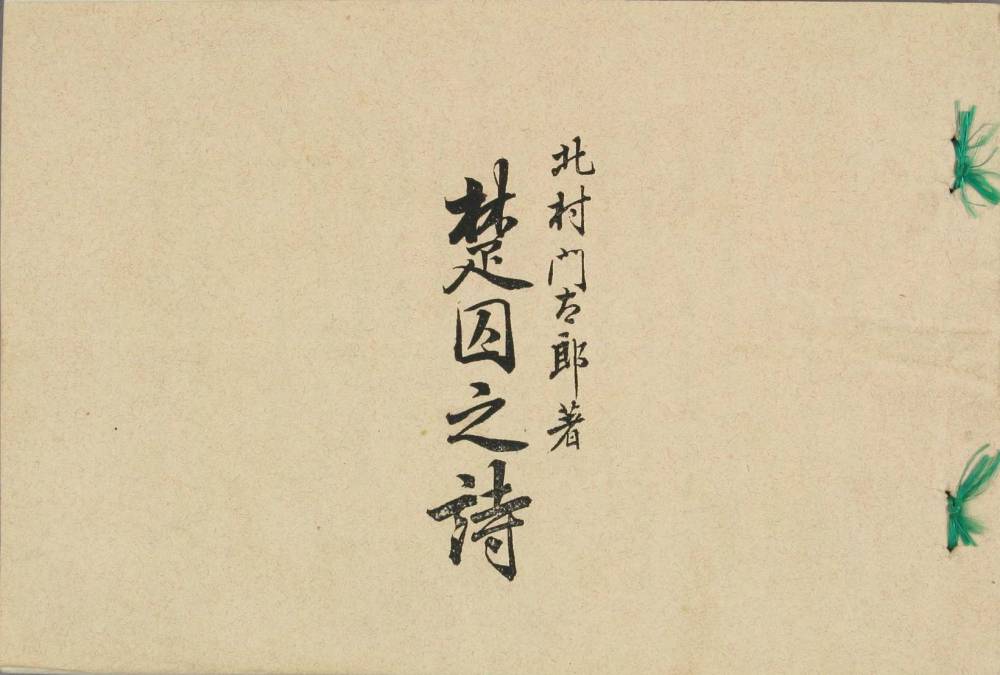 北村門太郎著
楚囚之詩